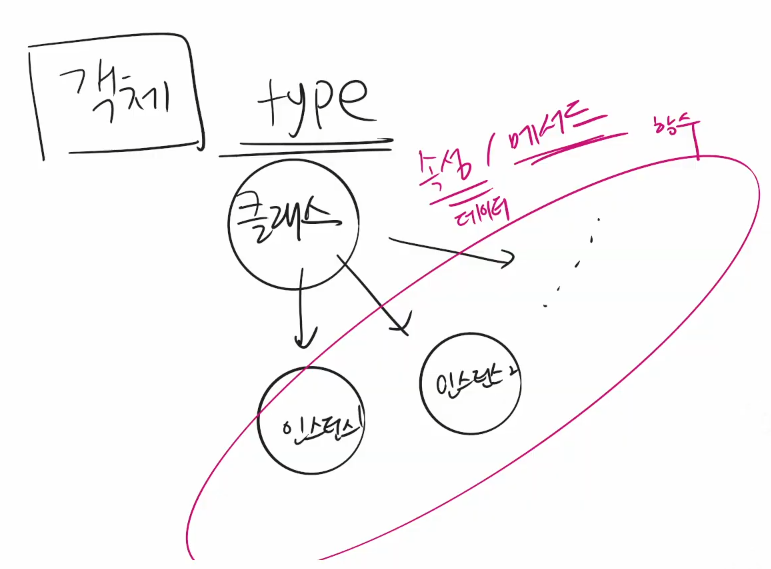 객체
type
속성 / 메서드
함수
데이터
클래스
인스턴스1
인스턴스2